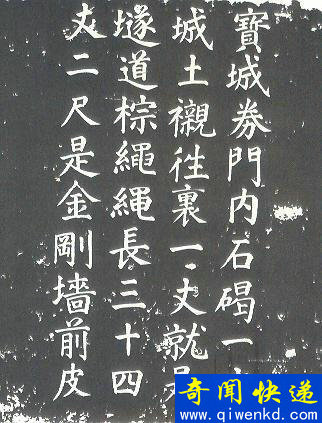 寶城券門內石碣一
城土襯徃裏一丈就是
墜道棕繩繩長三十四
丈二尺是金剛墻前皮
奇闻快递
www.qiwenkd.com